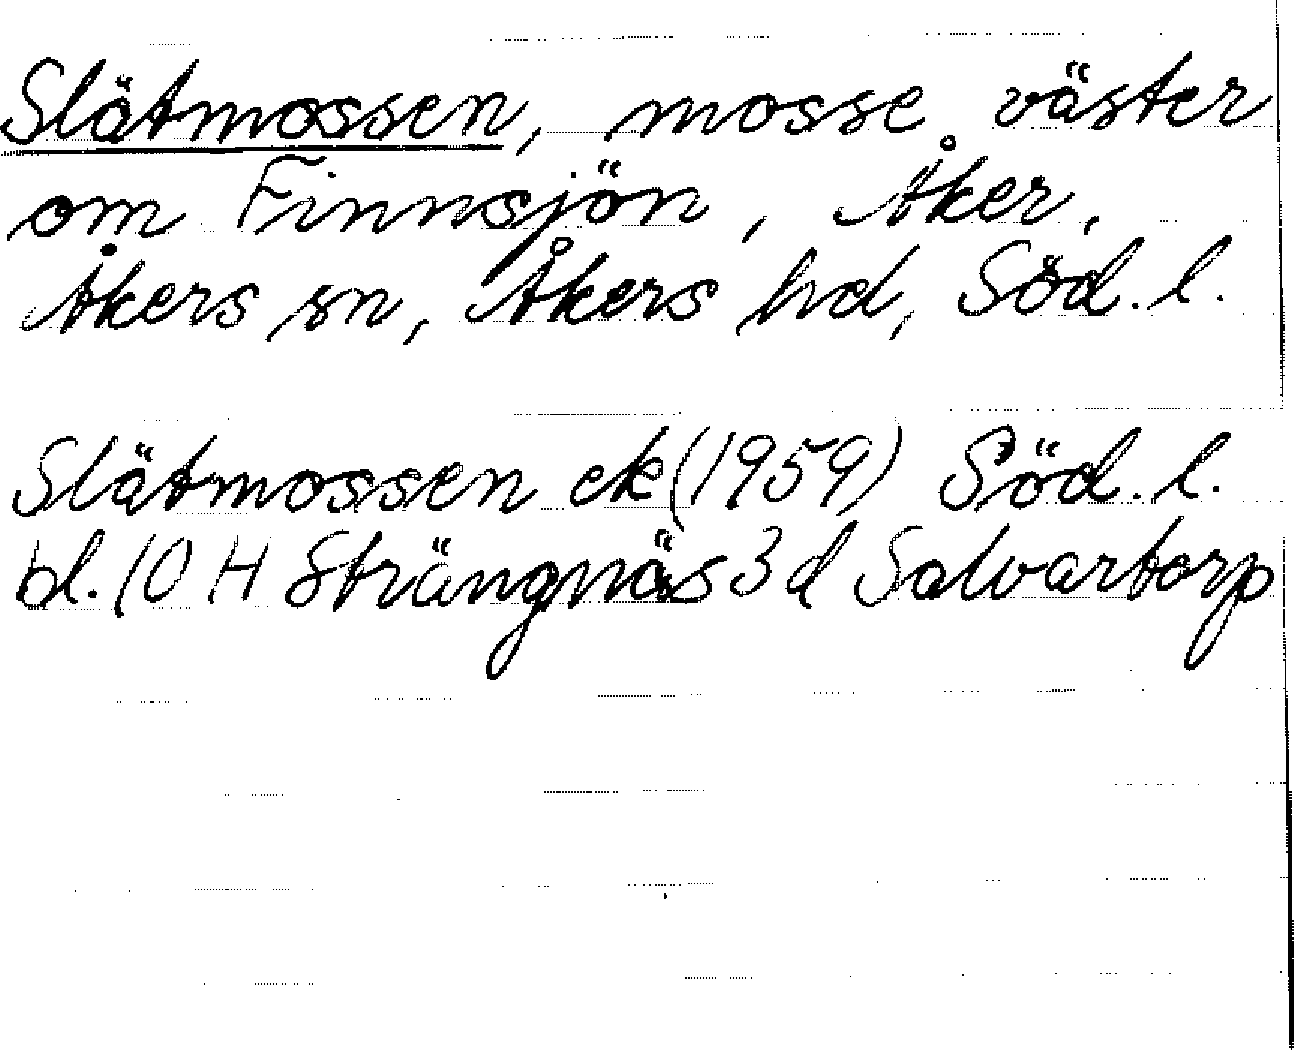 Slätmossen, mosse väster
om Finnsjön, Åker,
Åkers sn, Åkers hd, Söd. l.
Slätmossen ek (1959) Söd. l.
bl. 10 H Strängnäs 3 d Salvartorp